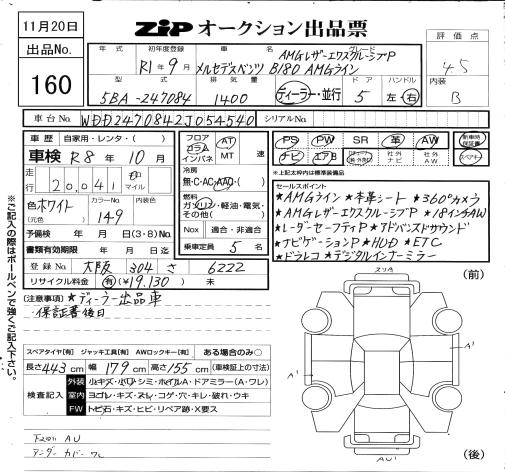 11月20日
ZiP オークション出品票
評価点
4.5
出品No.
160
年式 初年度登録 車名 グレード
R1年9月 メルセデスベンツ B180 AMGライン
AMGレザーエクスクルーシブP
型式 排気量 ドア ハンドル
5BA-247084 1400 ディーラー・並行 5 左・右
内装
B
車台No. WDD2470842J054540 シリアルNo.
車歴 自家用・レンタ・( )
車検 R8年10月
走行 20,041 km マイル
色 ホワイト (元色) カラーNo. 149 内装色
予備検 年 月 日(3・8)No.
書類有効期限 年 月 日迄
登録No. 大阪 304 さ 6222
リサイクル料金 有(¥19,130) 未
フロア コラム インパネ AT MT 速
冷房 無・C・AC・AAC・( )
燃料 ガソリン・軽油・電気・その他( )
Nox 適合・非適合
乗車定員 5 名
PS PW SR 革 AW 新車時保証書
ナビ エアB 社外ナビ 社外AW スペアキー
※上記太枠内は標準装備品
セールスポイント
★AMGライン ★本革シート ★360°カメラ
★AMGレザーエクスクルーシブP ★18インチAW
★レーダーセーフティP ★アドバンスドサウンド
★ナビゲーションP ★HUD ★ETC
★ドラレコ ★デジタルインナーミラー
(注意事項) ★ディーラー出品車
保証書後日
スペアタイヤ[有] ジャッキ工具[有] AWロックキー[有] ある場合のみ○
長さ443cm 幅179cm 高さ155cm (車検証上の寸法)
検査記入
外装 小キズ・小ワ・シミ・ホイルA・ドアミラー(A・ワレ)
室内 ヨゴレ・キズ・スレ・コゲ・穴・キレ・破れ・ウキ
FW トビ石・キズ・ヒビ・リペア跡・X要ス
AU
アンダーカバー ワレ
※ご記入の際はボールペンで強くご記入下さい。
(前)
スリA
A'
A'
AU'
(後)